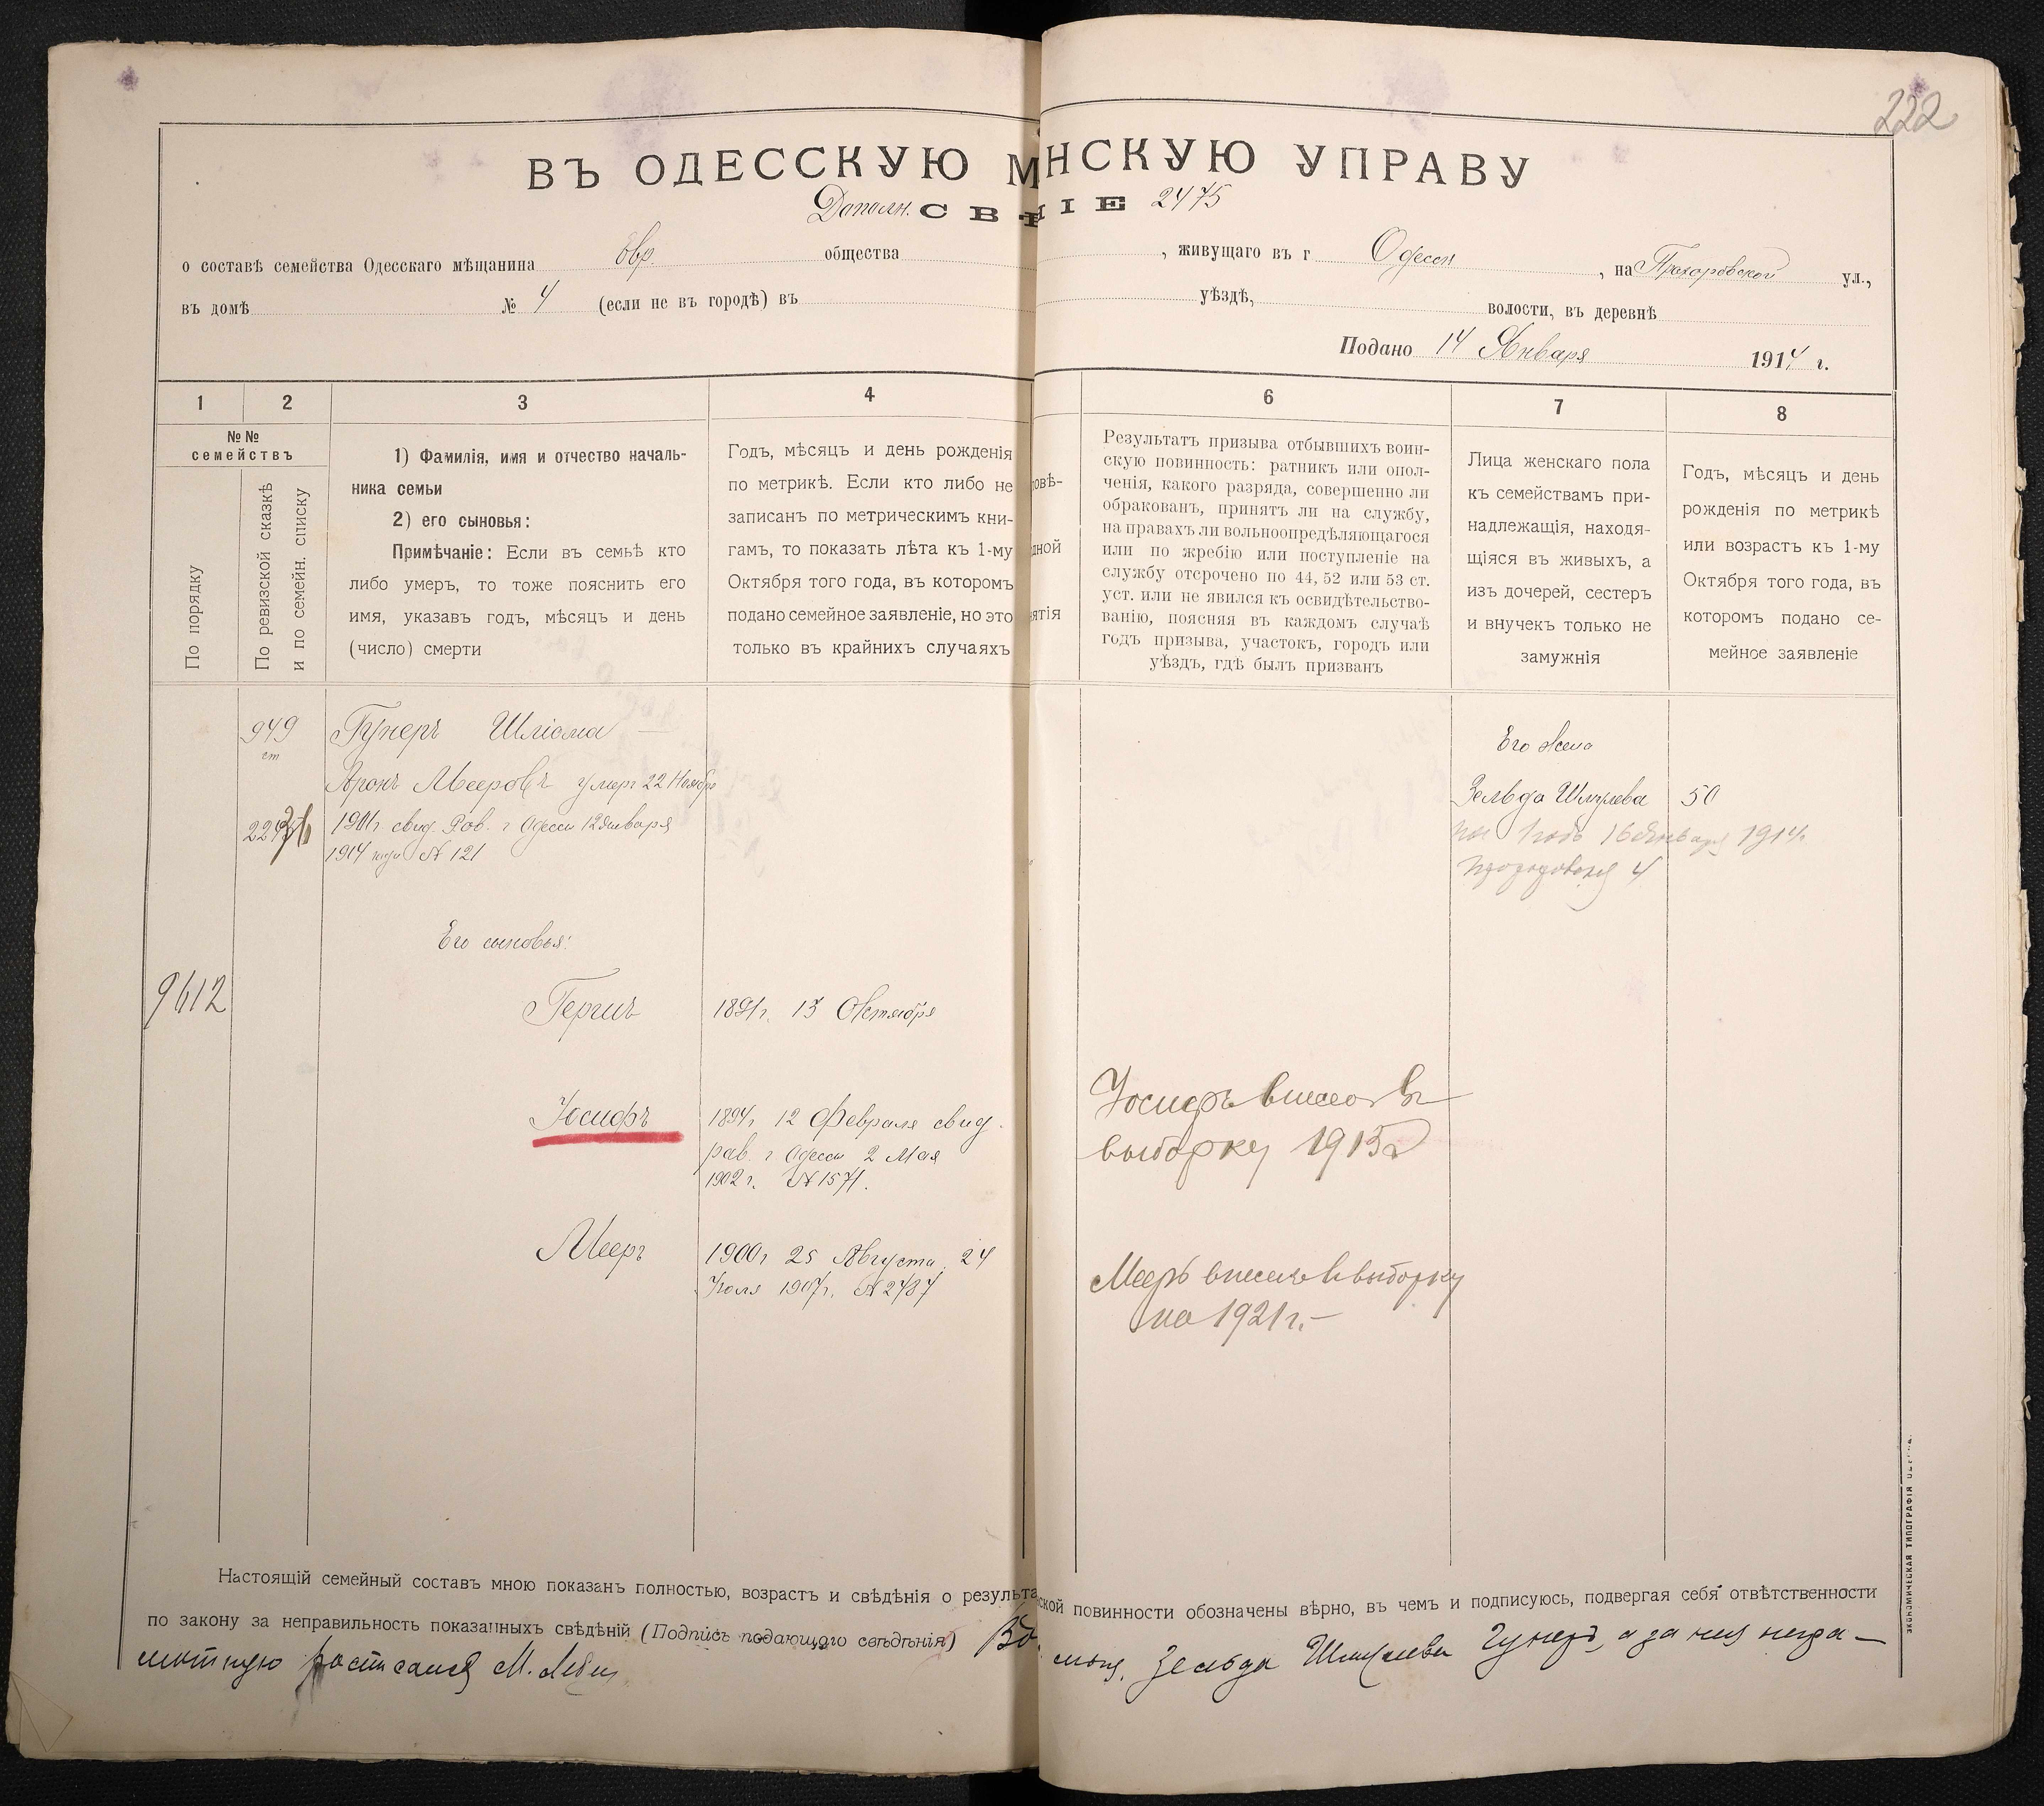 222
ВЪ ОДЕССКУЮ М НСКУЮ УПРАВУ
Дополн. СВѢ НІЕ 2475
о составѣ семейства Одесскаго мѣщанина евр. общества , живущаго въ г Одессѣ , на Прохоровской ул.,
въ домѣ № 4 (если не въ городѣ) въ уѣздѣ, волости, въ деревнѣ
Подано 14 Января 1914 г.
1 2 3 4 6 7 8
№№ семействъ
По порядку
По ревизской сказкѣ
и по семейн. списку
1) Фамилія, имя и отчество началь-
ника семьи
2) его сыновья:
Примѣчаніе: Если въ семьѣ кто
либо умеръ, то тоже пояснить его
имя, указавъ годъ, мѣсяцъ и день
(число) смерти
Годъ, мѣсяцъ и день рожденія
по метрикѣ. Если кто либо не
записанъ по метрическимъ кни-
гамъ, то показать лѣта къ 1-му
Октября того года, въ которомъ
подано семейное заявленіе, но это
только въ крайнихъ случаяхъ
овѣ-
дной
ятія
Результатъ призыва отбывшихъ воин-
скую повинность: ратникъ или опол-
ченія, какого разряда, совершенно ли
обракованъ, принятъ ли на службу,
на правахъ ли вольноопредѣляющагося
или по жребію или поступленіе на
службу отсрочено по 44, 52 или 53 ст.
уст. или не явился къ освидѣтельство-
ванію, поясняя въ каждомъ случаѣ
годъ призыва, участокъ, городъ или
уѣздъ, гдѣ былъ призванъ
Лица женскаго пола
къ семействамъ при-
надлежащія, находя-
щіяся въ живыхъ, а
изъ дочерей, сестеръ
и внучекъ только не
замужнія
Годъ, мѣсяцъ и день
рожденія по метрикѣ
или возрастъ къ 1-му
Октября того года, въ
которомъ подано се-
мейное заявленіе
949
ст
Гунеръ Шліома —
Аронъ Мееровъ умер 22 Ноября
1901г свид. Рав. г Одессы 12 Января
1914 года № 121
Его жена
Зельда Шмулева 50
на 1 годъ 16 Января 1914
Прохоровская 4
Его сыновья:
9612
Гершъ 1891г. 13 Октября
Іосифъ 1894г. 12 Февраля свид.
рав. г Одессы 2 Мая
1902 г. № 1571.
Іосифъ внесенъ въ
выборку 1915г
Мееръ 1900г 25 Августа 24
Іюля 1907г. № 2787
Мееръ внесенъ въ выборку
на 1921г. —
Настоящій семейный составъ мною показанъ полностью, возрастъ и свѣдѣнія о результа ской повинности обозначены вѣрно, въ чемъ и подписуюсь, подвергая себя отвѣтственности
по закону за неправильность показанныхъ свѣдѣній (Подпись подающаго свѣдѣнія) Зельда Шмулева Гунеръ, а за нея негра-
мотную росписался М.
ЭКОНОМИЧЕСКАЯ ТИПОГРАФІЯ